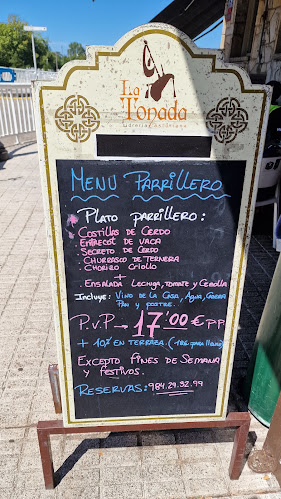 La
Tonada
Sidrería Asturiana
MENU PARRILLERO
PLATO PARRILLERO:
- COSTILLAS DE CERDO
- ENTRECOT DE VACA
- SECRETO DE CERDO
- CHURRASCO DE TERNERA
- CHORIZO CRIOLLO
+
ENSALADA LECHUGA, TOMATE Y CEBOLLA
INCLUYE: VINO DE LA CASA, AGUA, GASEOSA
PAN Y POSTRE.
P.V.P → 17'00€ PP
+ 10% EN TERRAZA.
EXCEPTO FINES DE SEMANA
Y FESTIVOS.
RESERVAS: 984.29.32.99